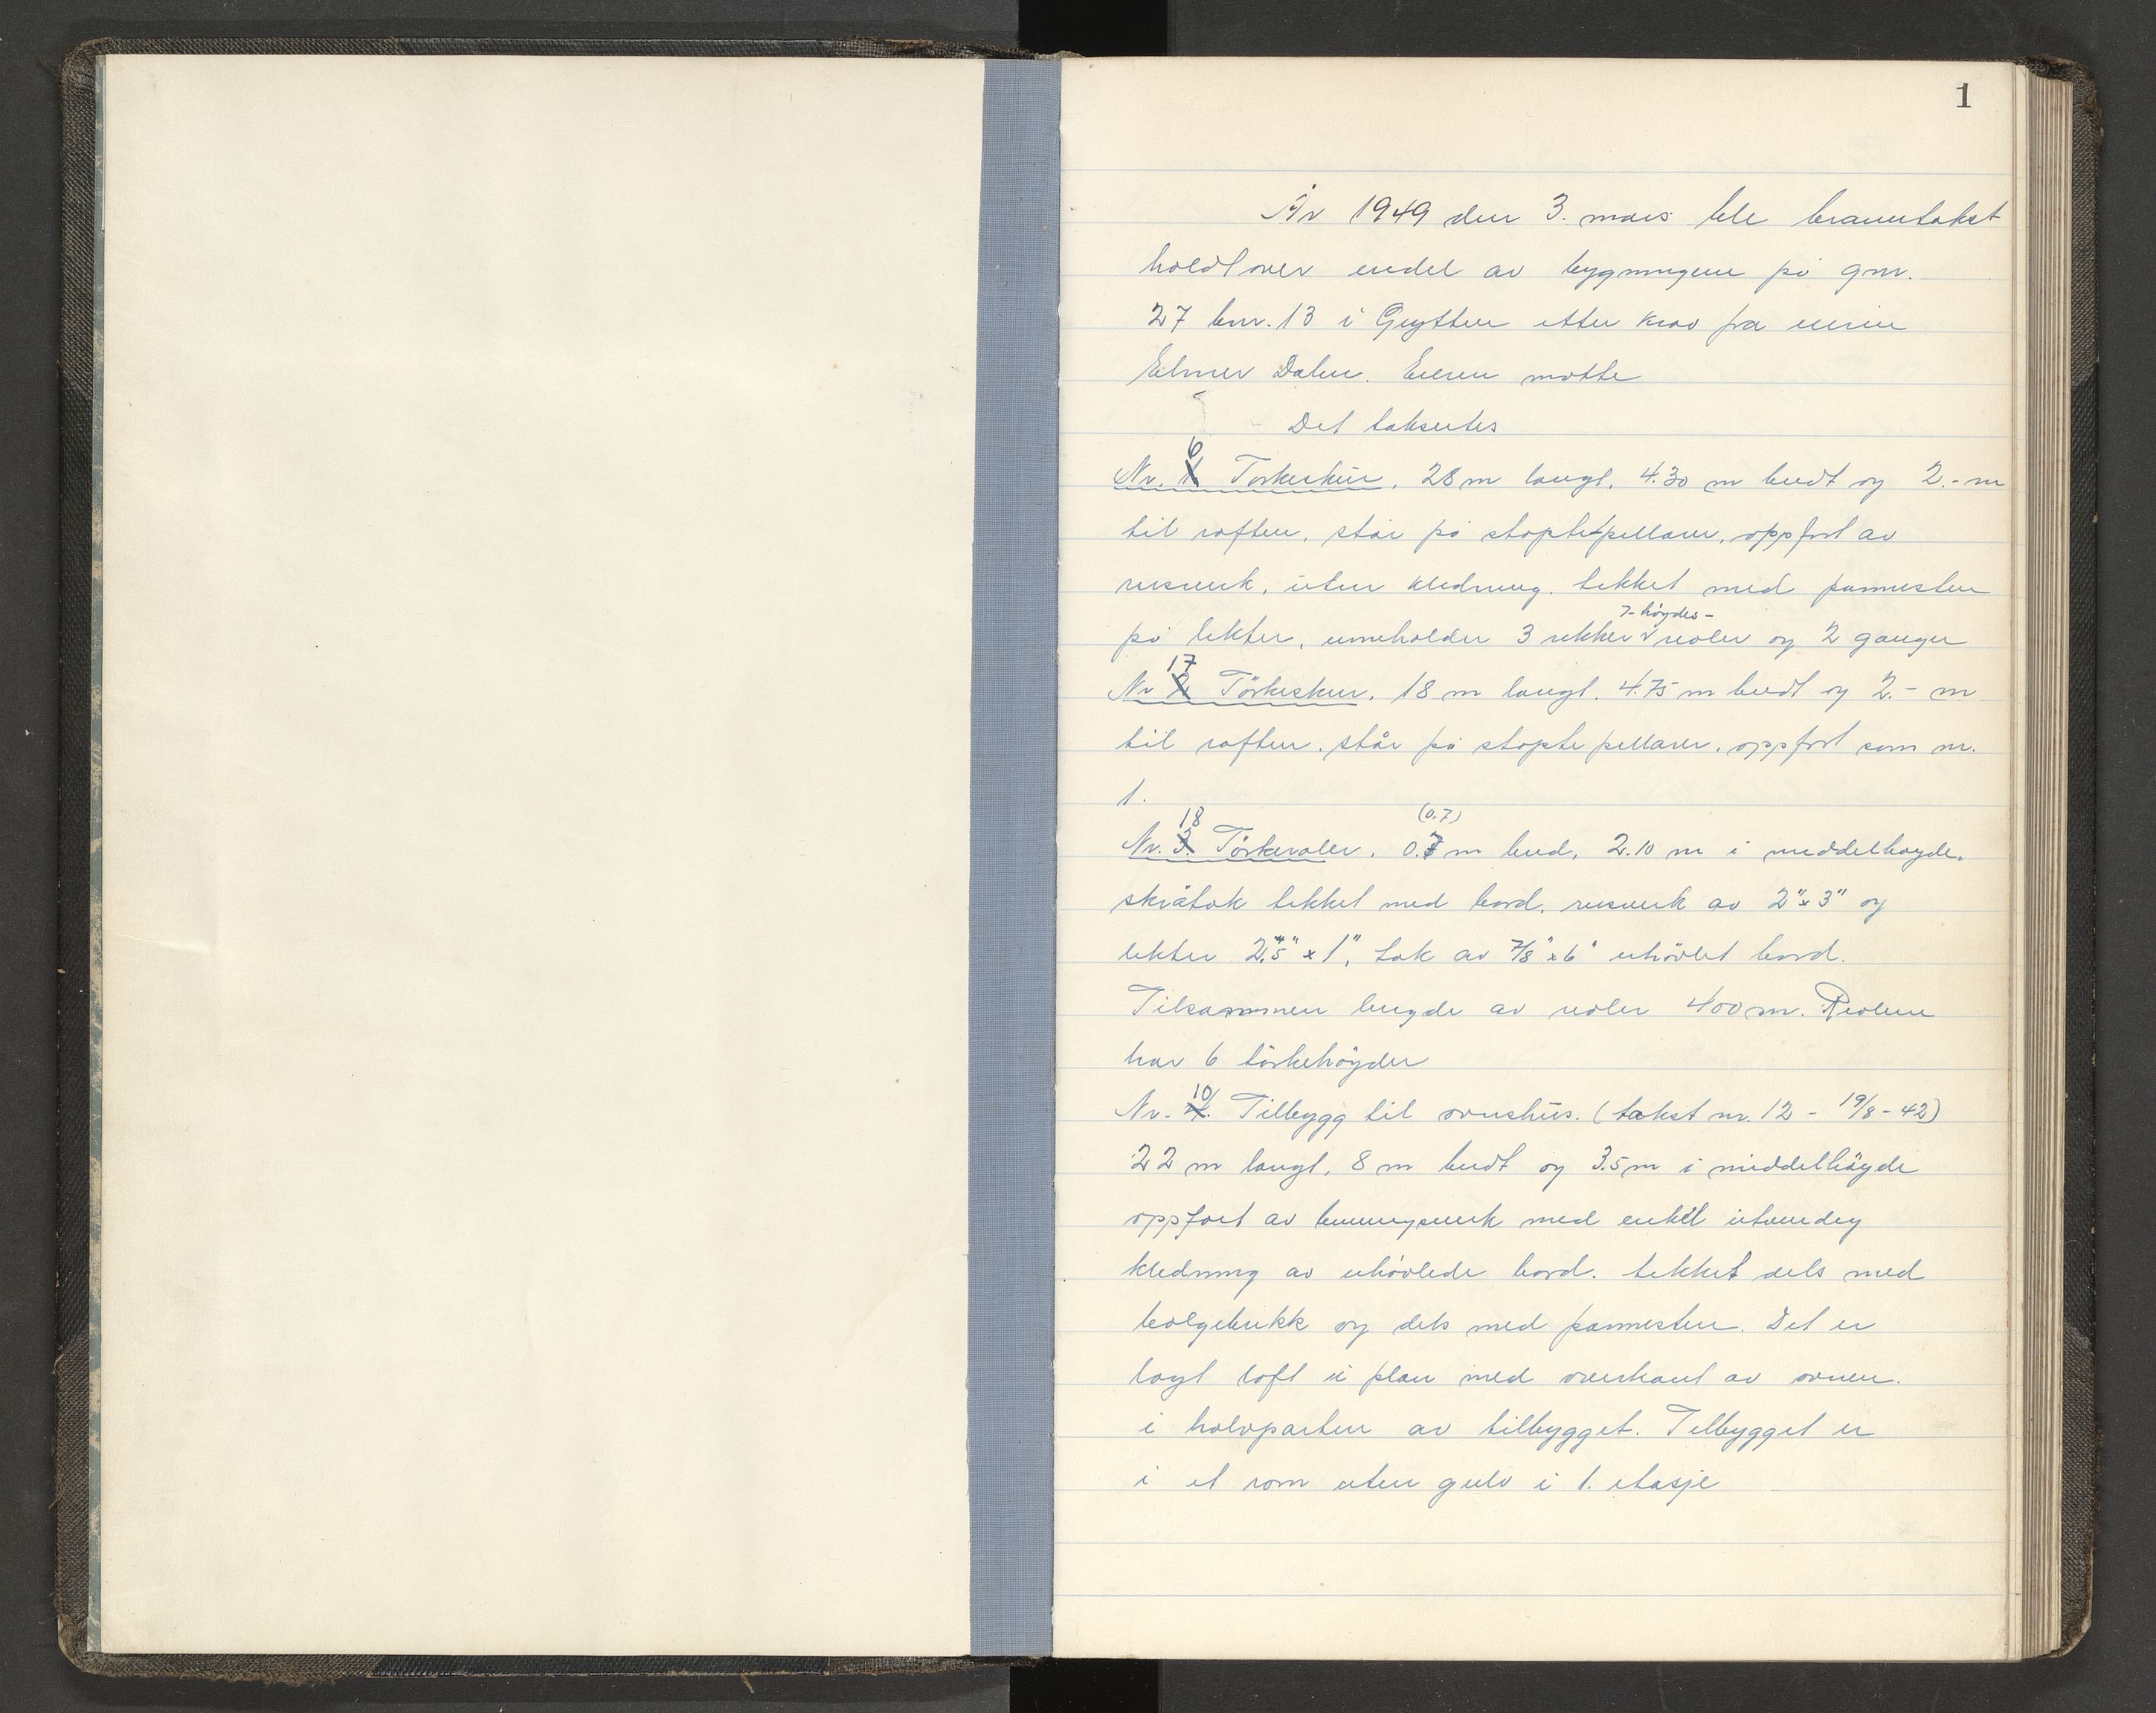 1
År 1949 den 3. mars ble branntakst
holdt over endel av bygningene på gnr.
27 bnr. 13 i Grytten etter krav fra eieren
Elmer Dalen. Eieren møtte
Det taksertes
6
Nr. 1 Tørkeskur, 28 m langt, 4.30 m bredt og 2.- m
til raften, står på støpte pillarer, oppført av
reisverk, uten kledning. tekket med pannesten
7-høydes-
på lekter, inneholder 3 rekker reoler og 2 ganger
17
Nr 2 Törkeskur, 18 m langt. 4.75 m bredt og 2.- m
til raften. står på støpte pillarer, oppført som nr.
1.
18 (0.7)
Nr. 3. Törkereoler. 0.7 m bred, 2.10 m i middelhøyde.
skråtak tekket med bord, reisverk av 2" x 3" og
lekter 2.5" x 1", tak av 7/8" x 6" uhövlet bord.
Tilsammen lengde av reoler 400 m. Reolene
har 6 törkehöyder
10
Nr. 4. Tilbygg til ovnshus. (takst nr. 12 - 19/8 - 42)
22 m langt, 8 m bredt og 3.5 m i middelhöyde
oppført av bindingsverk med enkel utvendig
kledning av uhövlede bord. tekket dels med
bølgeblikk og dels med pannesten. Det er
lagt loft i plan med overkant av ovnen.
i halvparten av tilbygget. Tilbygget er
i et rom uten gulv i 1. etasje